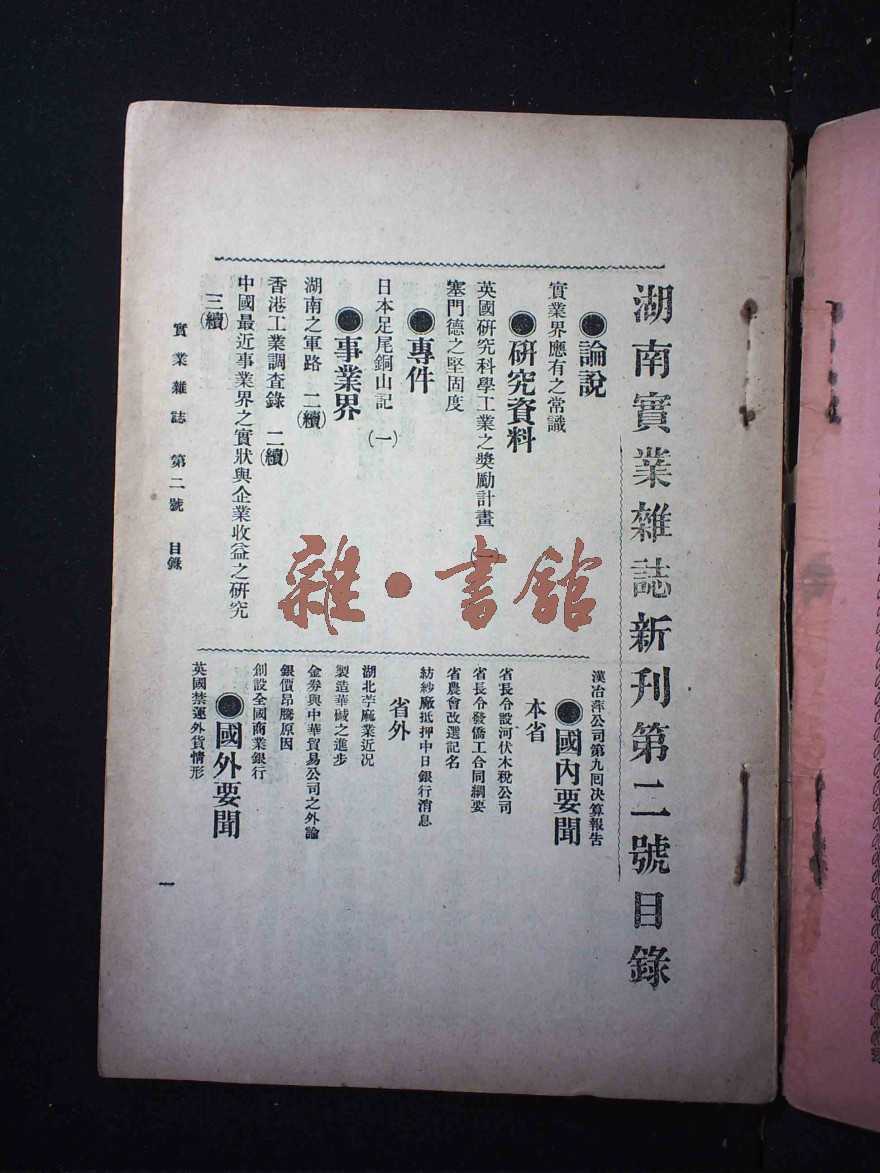 湖南實業雜誌新刊第二號目錄
●論説
實業界應有之常識
●研究資料
英國研究科學工業之奬勵計畫（一）
塞門德之堅固度
●專件
日本足尾銅山記（一）
●事業界
湖南之軍路 二（續）
香港工業調查錄 二（續）
中國最近事業界之實狀與企業收益之研究
三（續）
漢冶萍公司第九回決算報告
●國內要聞
本省
省長令設河伏木稅公司
省長令發僑工合同綱要
省農會改選記名
紡紗廠抵押中日銀行消息
省外
湖北苧麻業近况
製造華碱之進步
金券與中華貿易公司之外論
銀價昂騰原因
創設全國商業銀行
●國外要聞
英國禁運外貨情形
實業雜誌 第二號 目錄
一
雜·書館